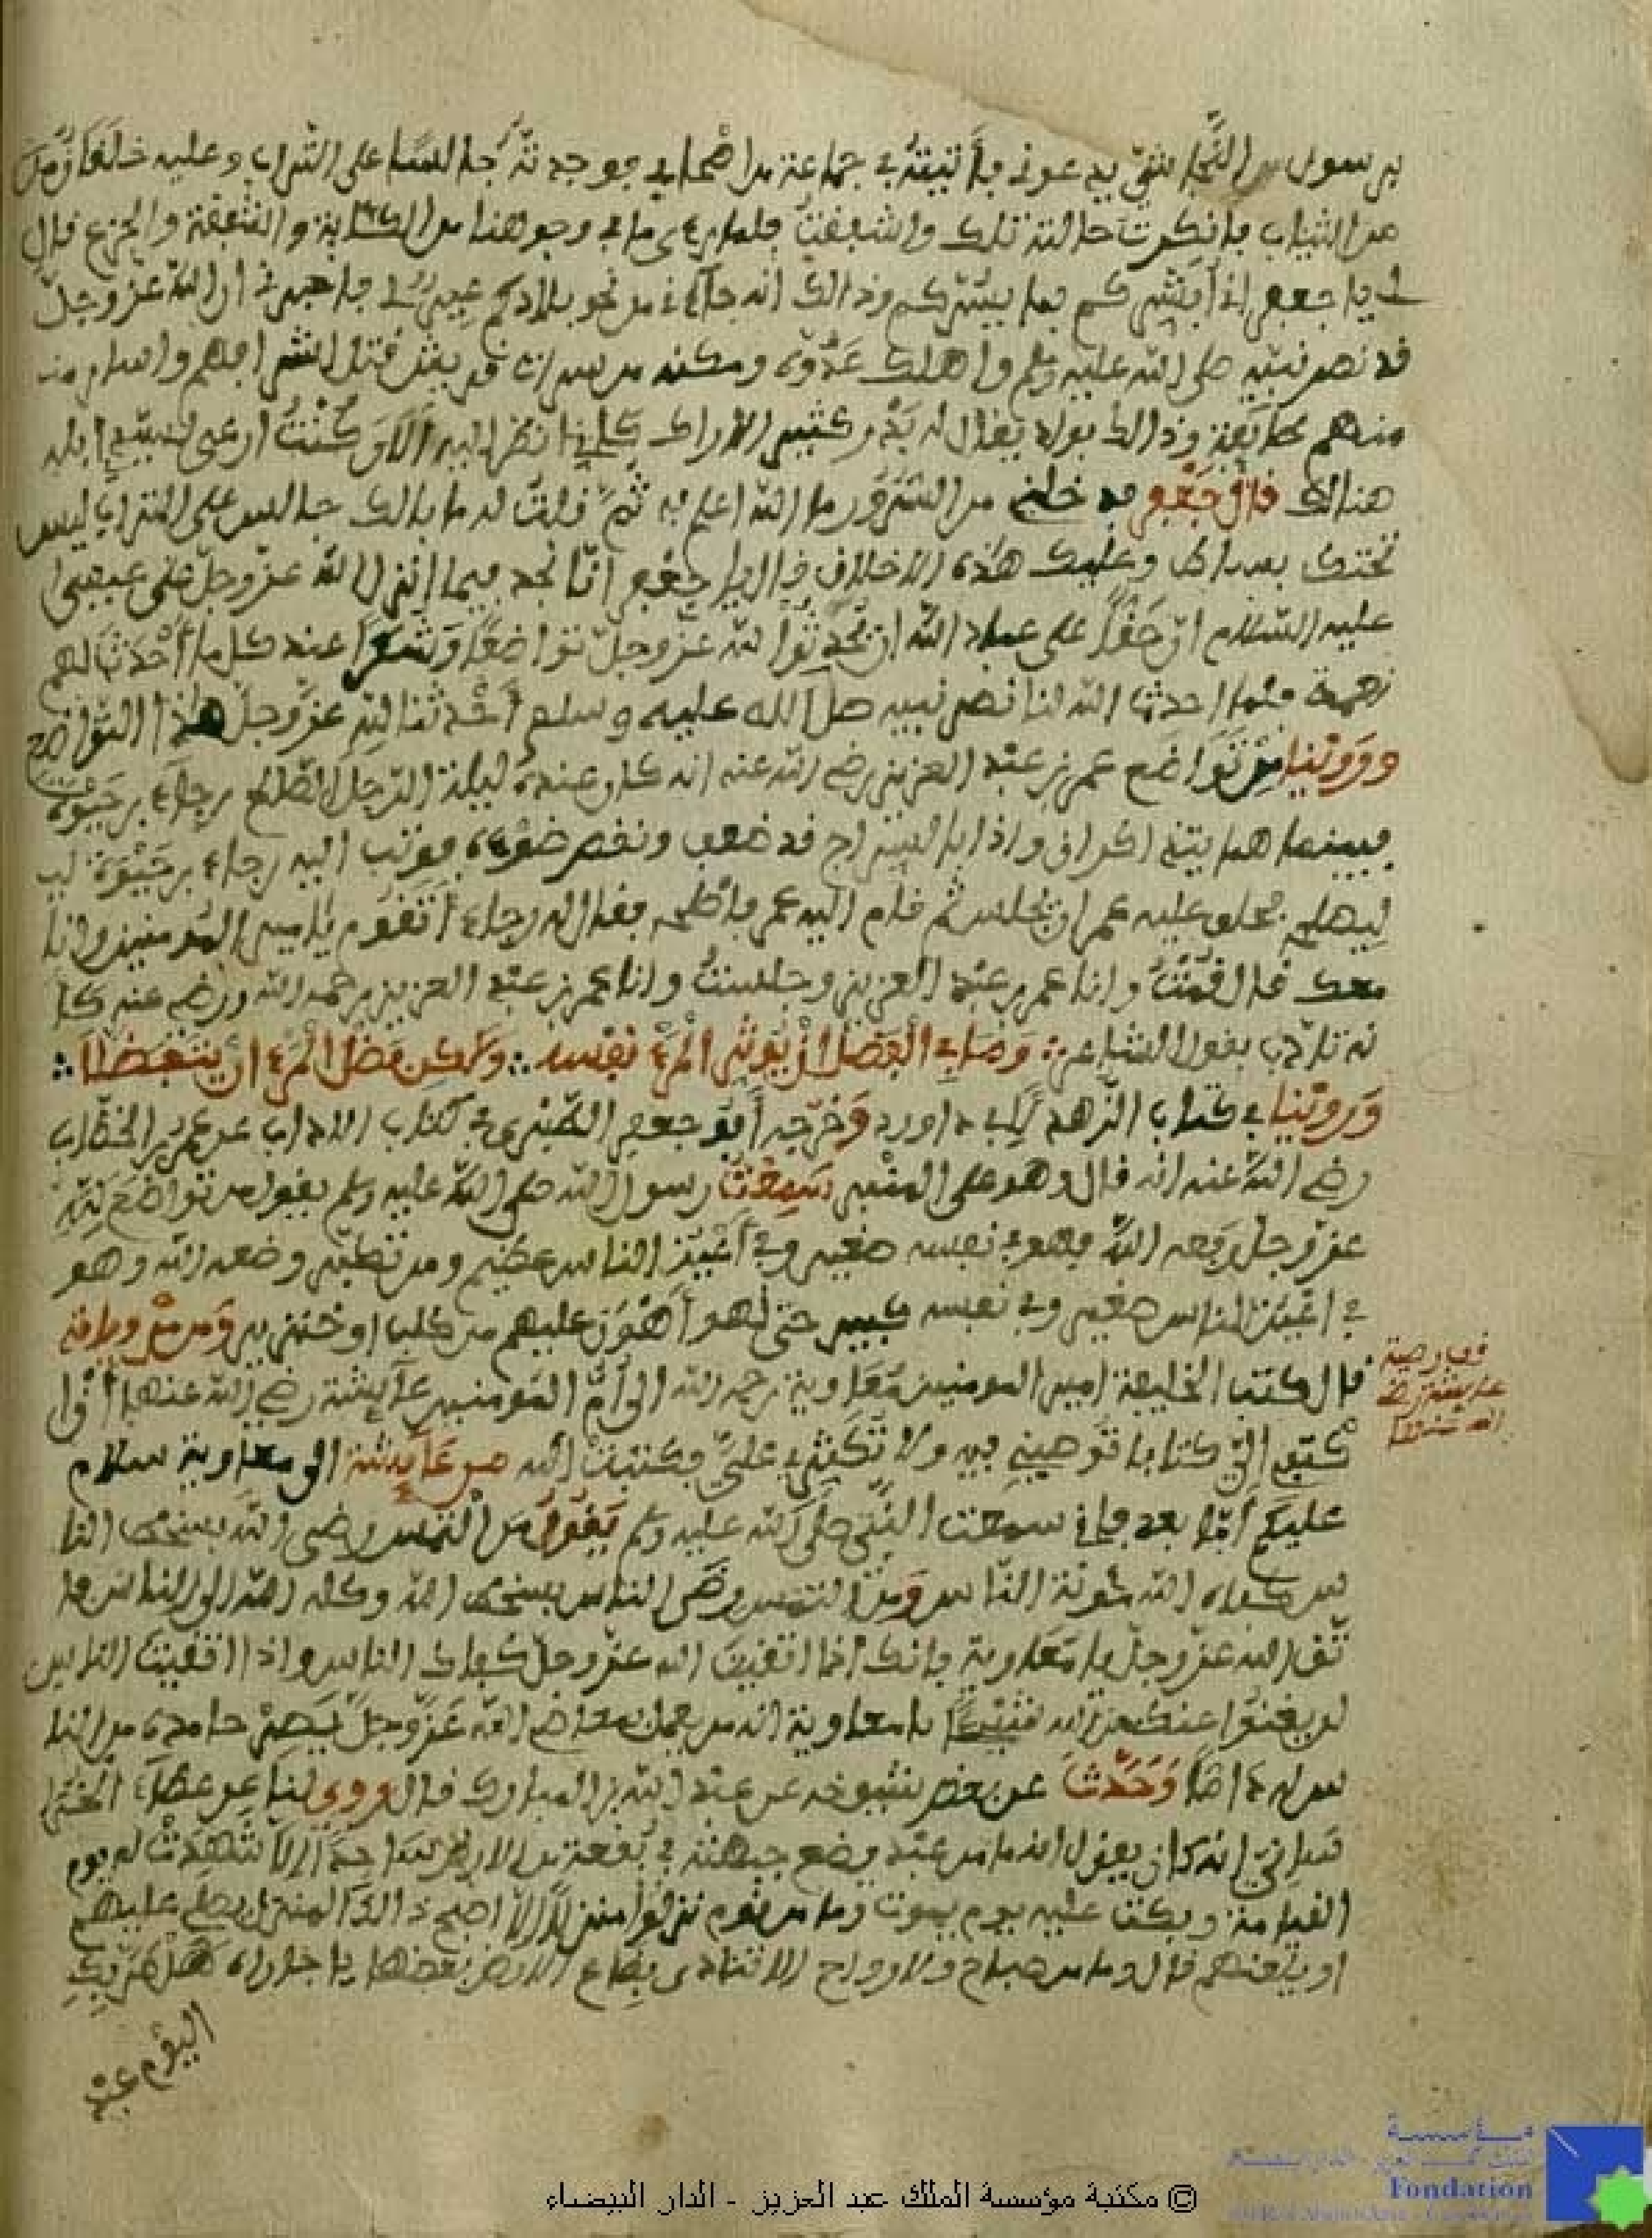 بن سول من النجاشي يدعوني فأتيته في جماعة من أصحابي فوجدته جالسا على التراب وعليه
من الثياب فأنكرت حالته تلك وأشفقت فلما رءى ما في وجوهنا من الكئابة والشفقة والجزع قال
لي يا جعفر إني أبشركم بما يسركم وذالك أنه جآءني من نحو بلادكم عير لي فأخبرني أن الله عز وجل
قد نصر نبيه صلى الله عليه وسلم وأهلك عدوه ومكنه من سرات قريش قتل أشرافهم وأسر من
منهم طايفة وذالك بواد يقال له بدر كثير الأراك كأني أنظر إليه ألا وكنت أرعى لسيدي إبله
هنالك قال جعفر فدخلني من السرور ما الله أعلم به ثم قلت له ما بالك جالس على التراب ليس
تحتك بساط وعليك هذه الأخلاق قال يا جعفر إنا نجد فيما أنزل الله عز وجل على عيسى
عليه السلام ان حقا على عباد الله ان يحدثوا لله عز وجل تواضعا عند كل ما أحدث لهم
نعمة فلما احدث الله لنا نصر نبيه صلى الله عليه وسلم أحدثنا لله عز وجل هذا التواضع
وروينا من تواضع عمر بن عبد العزيز رضي الله عنه انه كان عنده ليلة الرجل الصالح رجاء بن حيوة
فبينما هما يتذاكران واذا بالسراج قد ضعف ونقص ضوءه فوثب اليه رجاء بن حيوة لي
ليصلحه فحلف عليه عمر ان يجلس ثم قام اليه عمر فأصلحه فقال له رجاء أتقوم يا امير المومنين وانا
معك قال قمت وانا عمر بن عبد العزيز وجلست وانا عمر بن عبد العزيز رحمه الله ورضي عنه كا
نه تأدب بقول الشاعر وما في الفضل أن يوثر المرء نفسه ولكن فضل المرء أن يتفضلا
وروينا في كتاب الزهد لابي داوود وخرجه أبو جعفر الطبري في كتاب الاداب عن عمر بن الخطاب
رضي الله عنه انه قال وهو على المنبر سمعت رسول الله صلى الله عليه وسلم يقول من تواضع لله
عز وجل رفعه الله فهو في نفسه صغير وفي أعين الناس عظيم ومن تكبر وضعه الله وهو
في اعين الناس صغير وفي نفسه كبير حتى لهو أهون عليهم من كلب او خنزير
قال كتب الخليفة امير المومنين معاوية رحمه الله الى أم المومنين عآيشة رضي الله عنهما أن ا
كتبي إلي كتابا توصيني فيه ولا تكثري علي فكتبت اليه من عآيشة الى معاوية سلام
عليكم أما بعد فإني سمعت النبي صلى الله عليه وسلم يقول من التمس رضى الله بسخط النا
س كفاه الله مئونة الناس ومن التمس رضى الناس بسخط الله وكله الله الى الناس فا
تق الله عز وجل يا معاوية فانك اذا اتقيت الله عز وجل كفاك الناس واذا اتقيت الناس
لن يغنوا عنك من الله شيئا يا معاوية انه من يعمل بمعاصي الله عز وجل يصير حامده من النا
س له ذاما وحدث عن بعض شيوخه عن عبد الله بن المبارك قال وروي لنا عن عطاء الخر
ساني انه كان يقول انه ما من عبد يضع جبهته في بقعة من الارض ساجدا الا شهدت له يوم
القيامة وبكت عليه يوم يموت وما من قوم نزلوا منزلا الا اصبح ذالك المنزل يصلي عليهم
او يلعنهم قال وما من صباح ولا رواح الا تنادى بقاع الارض بعضها يا جاراه هل مر بك
اليوم عبد
قف وصية
عايشة رضي
الله عنها
© مكتبة مؤسسة الملك عبد العزيز - الدار البيضاء
مؤسسة
Fondation